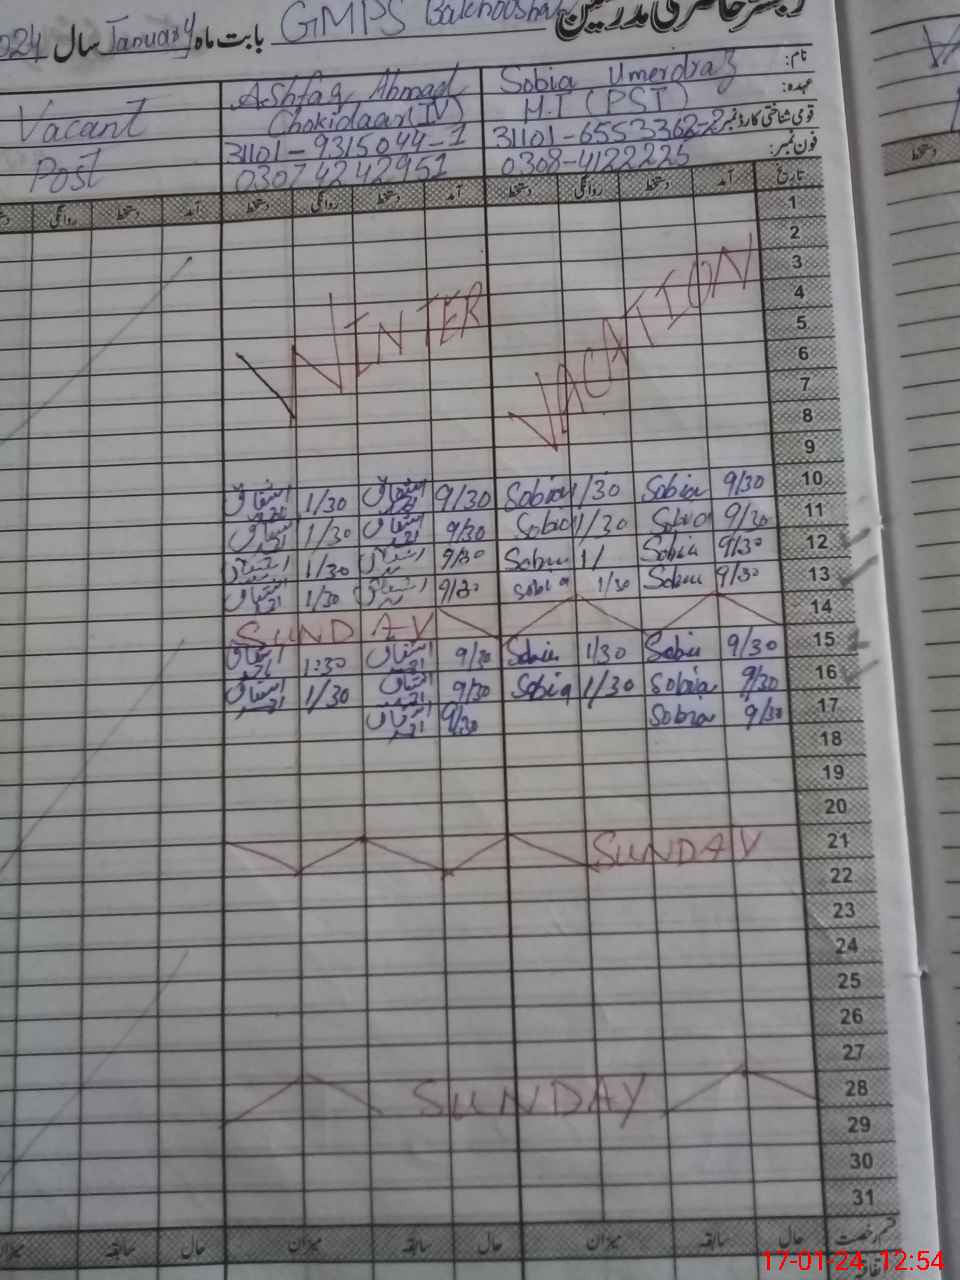 رجسٹر حاضری مدرسین
GMPS بابت ماہ January سال 2024
نام: Sobia Umerdraz Ashfaq Ahmad Vacant
عہدہ: M.T (PST) Chokidaar (IV) Post
قومی شناختی کارڈ نمبر 31101-6553362-2 31101-9315044-1
فون نمبر: 0308-4122225 03074242951
تاریخ آمد دستخط روانگی دستخط آمد دستخط روانگی دستخط آمد دستخط روانگی
1
2
3
4
5
6
7
8
9
WINTER VACATION
10 9/30 Sobia 1/30 Sobia 9/30 اشفاق احمد 1/30 اشفاق احمد
11 9/30 Sobia 1/30 Sobia 9/30 اشفاق احمد 1/30 اشفاق احمد
12 9/30 Sobia 1/ Sobia 9/30 اشفاق احمد 1/30 اشفاق احمد
13 9/30 Sobia 1/30 Sobia 9/30 اشفاق احمد 1/30 اشفاق احمد
14 SUNDAY
15 9/30 Sobia 1/30 Sobia 9/30 اشفاق احمد 1:30 اشفاق احمد
16 9/30 Sobia 1/30 Sobia 9/30 اشفاق احمد 1/30 اشفاق احمد
17 9/30 Sobia 9/30 اشفاق احمد
18
19
20
21 SUNDAY
22
23
24
25
26
27
28 SUNDAY
29
30
31
قسم رخصت حال سابقہ میزان حال سابقہ میزان حال سابقہ میزان
17-01-24 12:54